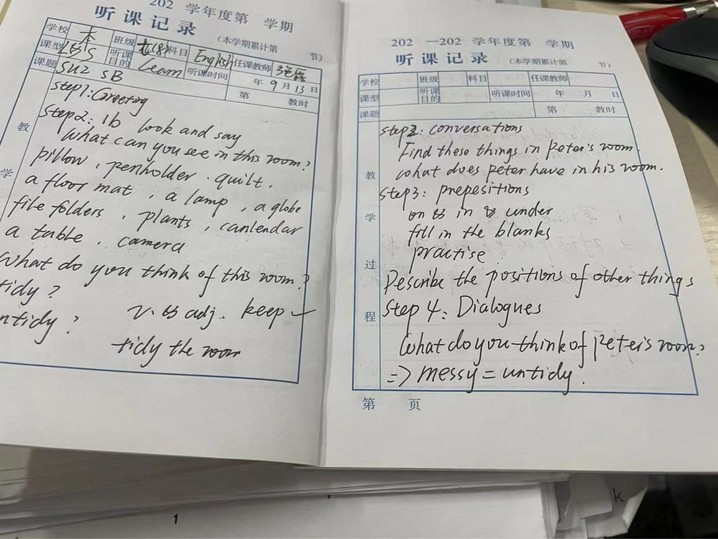 202 学年度第 学期
听课记录 (本学期累计第 节)
学校 本 班级 科目 English 任课教师
课型 听课目的 Learn 听课时间 年9月13日
课题 SU2 SB 第 教时
教学
step1: Greeting
step2: 1b look and say
What can you see in this room?
pillow, penholder, quilt,
a floor mat, a lamp, a globe
file folders, plants, canlendar
a table, camera
What do you think of this room?
tidy?
untidy? v. adj. keep
tidy the room
202 —202 学年度第 学期
听课记录 (本学期累计第 节)
学校 班级 科目 任课教师
课型 听课目的 听课时间 年 月 日
课题 第 教时
教学过程
step2: conversations
Find these things in Peter's room
what does peter have in his room.
step3: prepesitions
on in under
fill in the blanks
practise.
Describe the positions of other things
Step 4: Dialogues
What do you think of Peter's room?
=> messy = untidy.
第 页
1
K